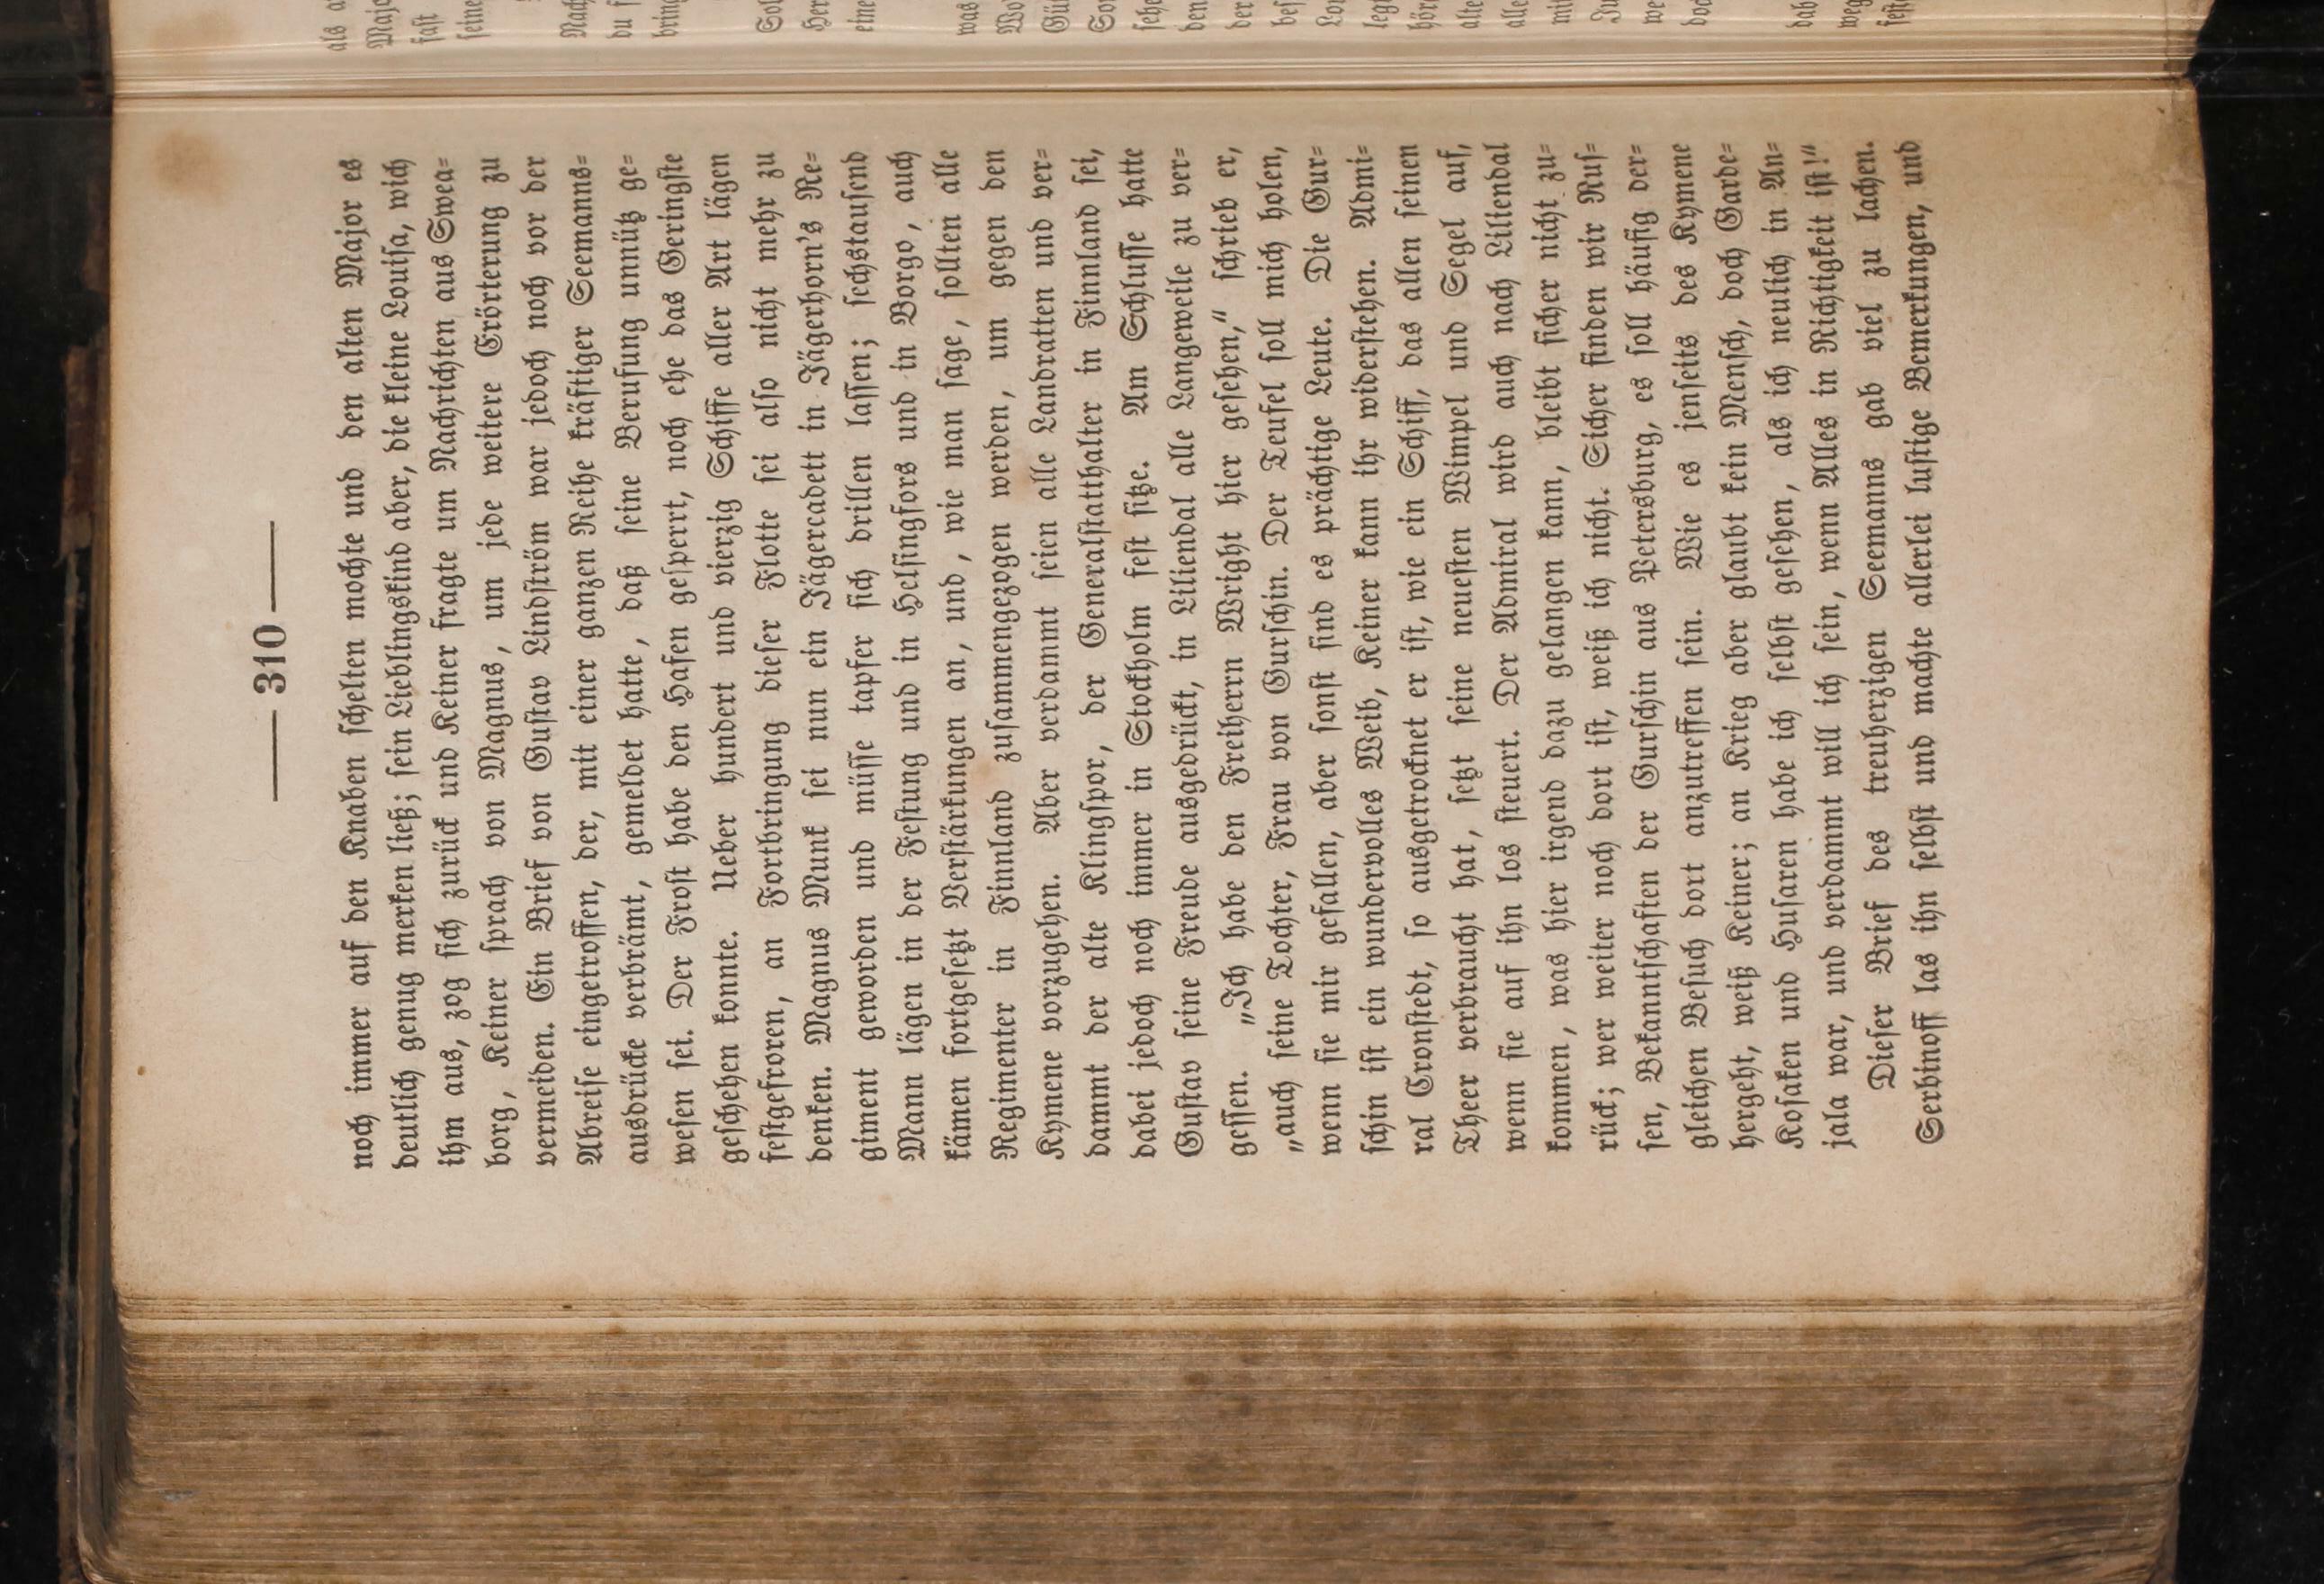 — 310 —
noch immer auf den Knaben schelten mochte und den alten Major es
deutlich genug merken ließ; sein Lieblingskind aber, die kleine Louisa, wich
ihm aus, zog sich zurück und Keiner fragte um Nachrichten aus Swea-
borg, Keiner sprach von Magnus, um jede weitere Erörterung zu
vermeiden. Ein Brief von Gustav Lindström war jedoch noch vor der
Abreise eingetroffen, der, mit einer ganzen Reihe kräftiger Seemanns-
ausdrücke verbrämt, gemeldet hatte, daß seine Berufung unnütz ge-
wesen sei. Der Frost habe den Hafen gesperrt, noch ehe das Geringste
geschehen konnte. Ueber hundert und vierzig Schiffe aller Art lägen
festgefroren, an Fortbringung dieser Flotte sei also nicht mehr zu
denken. Magnus Munk sei nun ein Jägercadett in Jägerhorn's Re-
giment geworden und müsse tapfer sich drillen lassen; sechstausend
Mann lägen in der Festung und in Helsingfors und in Borgo, auch
kämen fortgesetzt Verstärkungen an, und, wie man sage, sollten alle
Regimenter in Finnland zusammengezogen werden, um gegen den
Kymene vorzugehen. Aber verdammt seien alle Landratten und ver-
dammt der alte Klingspor, der Generalstatthalter in Finnland sei,
dabei jedoch noch immer in Stockholm fest sitze. Am Schlusse hatte
Gustav seine Freude ausgedrückt, in Liliendal alle Langeweile zu ver-
gessen. „Ich habe den Freiherrn Wright hier gesehen,“ schrieb er,
„auch seine Tochter, Frau von Gurschin. Der Teufel soll mich holen,
wenn sie mir gefallen, aber sonst sind es prächtige Leute. Die Gur-
schin ist ein wundervolles Weib, Keiner kann ihr widerstehen. Admi-
ral Cronstedt, so ausgetrocknet er ist, wie ein Schiff, das allen seinen
Theer verbraucht hat, setzt seine neuesten Wimpel und Segel auf,
wenn sie auf ihn los steuert. Der Admiral wird auch nach Liliendal
kommen, was hier irgend dazu gelangen kann, bleibt sicher nicht zu-
rück; wer weiter noch dort ist, weiß ich nicht. Sicher finden wir Rus-
sen, Bekanntschaften der Gurschin aus Petersburg, es soll häufig der-
gleichen Besuch dort anzutreffen sein. Wie es jenseits des Kymene
hergeht, weiß Keiner; an Krieg aber glaubt kein Mensch, doch Garde-
Kosaken und Husaren habe ich selbst gesehen, als ich neulich in An-
jala war, und verdammt will ich sein, wenn Alles in Richtigkeit ist!“
Dieser Brief des treuherzigen Seemanns gab viel zu lachen.
Serbinoff las ihn selbst und machte allerlei lustige Bemerkungen, und